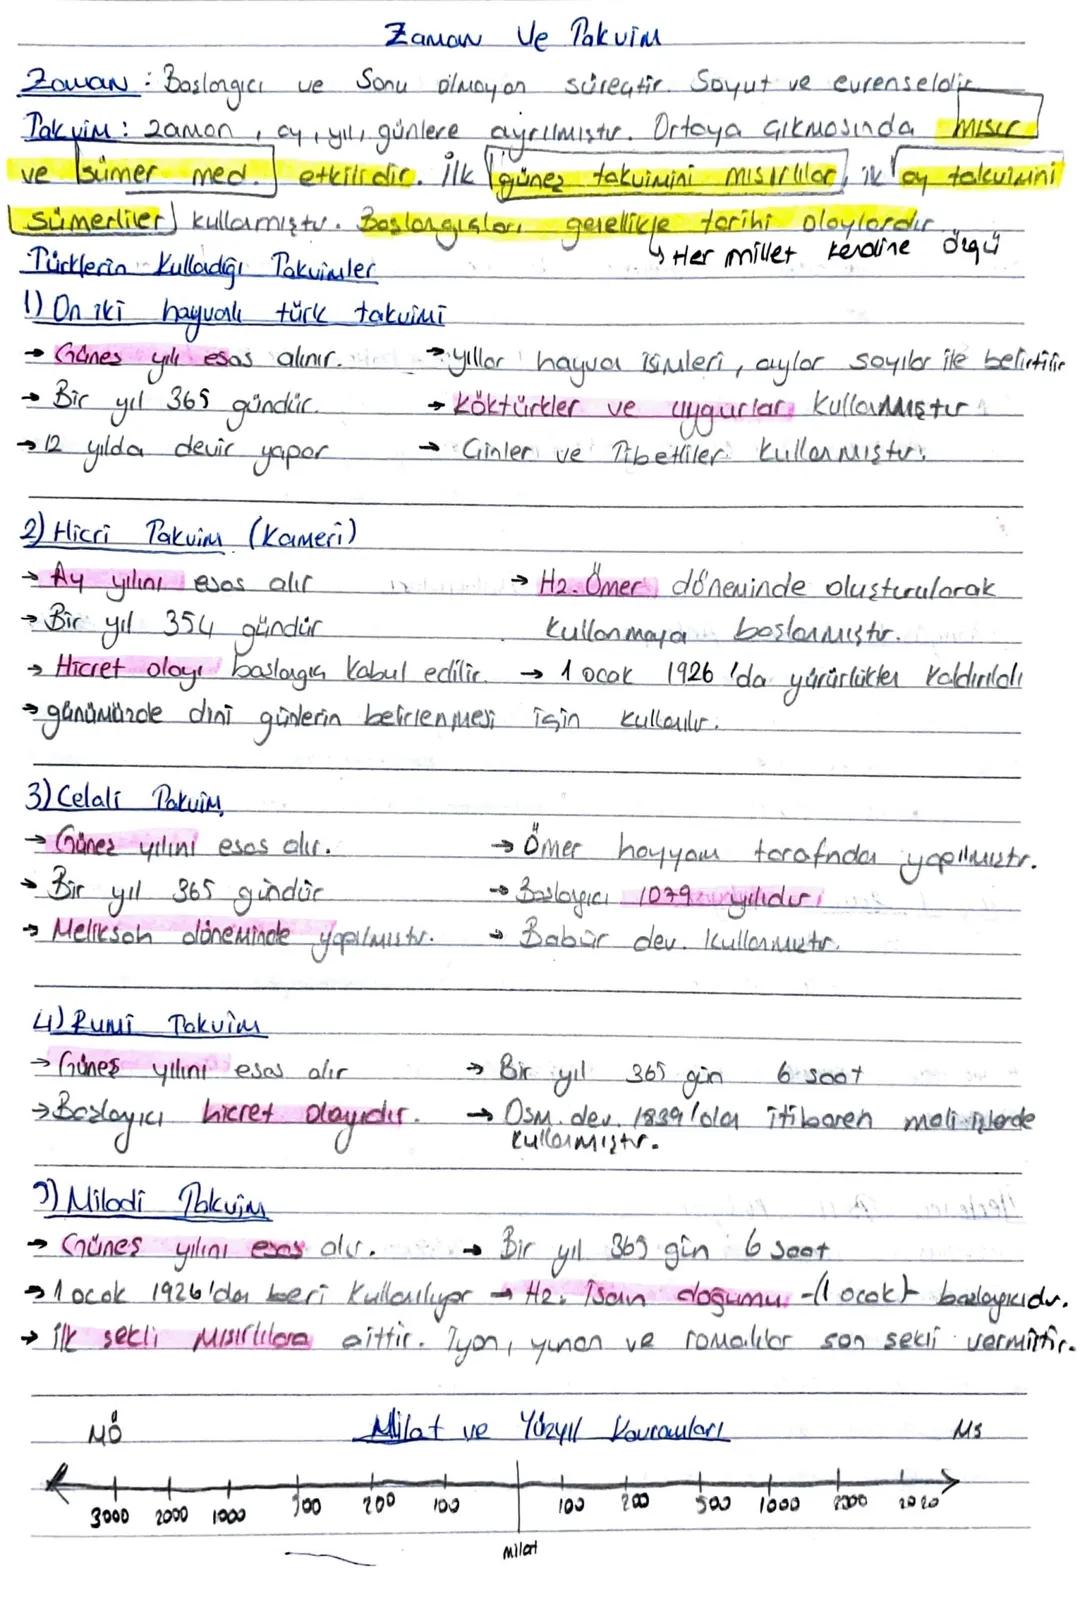 Zaman Ve Takvim
Zaman : Başlangıcı ve Sonu olmayan süreçtir. Soyut ve evrenseldir
Takvim : zaman , ay , yıl , günlere ayrılmıştır. Ortaya Çıkmasında mısır
ve sümer med. etkilidir. İlk güneş takvimini mısırlılar, ilk ay takvimini
Sümerliler kullanmıştır. Başlangıçları genellikle tarihi olaylardır
↳ Her millet kendine özgü
Türklerin Kulladığı Takvimler
1) On iki hayvanlı türk takvimi
→ Güneş yılı esas alınır. → yıllar hayvan isimleri, aylar sayılar ile belirtilir
→ Bir yıl 365 gündür. → Köktürkler ve uygurlar Kullanmıştır
→ 12 yılda devir yapar → Çinler ve Tibetliler kullanmıştır.
2) Hicri Takvim (Kameri)
→ Ay yılını esas alır → Hz. Ömer döneminde oluşturularak
→ Bir yıl 354 gündür kullanmaya başlanmıştır.
→ Hicret olayı başlangıç kabul edilir. → 1 ocak 1926 'da yürürlükten kaldırıldı
→ günümüzde dini günlerin belirlenmesi için kullanılır.
3) Celali Takvim
→ Güneş yılını esas alır. → Ömer hayyam tarafından yapılmıştır.
→ Bir yıl 365 gündür → Başlangıcı 1079 yılıdır
→ Melikşah döneminde yapılmıştır. → Babür dev. kullanmıştır.
4) Rumi Takvim
→ Güneş yılını esas alır → Bir yıl 365 gün 6 saat
→ Başlangıcı hicret olayıdır. → Osm. dev. 1839'dan itibaren mali işlerde
kullanmıştır.
5) Miladi Takvim
→ Güneş yılını esas alır. → Bir yıl 365 gün 6 saat
→ 1 ocak 1926'dan beri kullanılıyor → Hz. İsanın doğumu (1 ocak) başlangıcıdır.
→ ilk şekli Mısırlılara aittir. İyon, yunan ve romalılar son şekli vermiştir.
MÖ Milat ve Yüzyıl Kavramları MS
3000 2000 1000 500 200 100 100 200 500 1000 2000 2020
milat